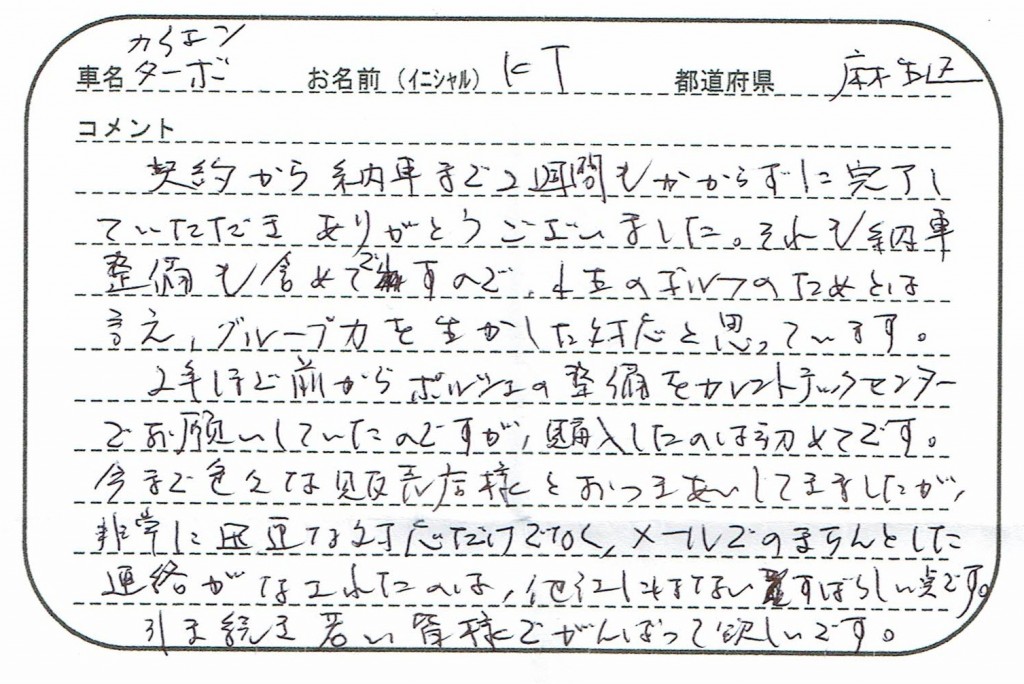 カイエン
車名 ターボ お名前 (イニシャル) KT 都道府県 麻生区
コメント
契約から納車まで2週間もかからずに完了し
ていただきありがとうございました。それも納車
整備も含めてですので、 のゴルフのためとは
言え、グループ力を生かした対応と思っています。
2年ほど前からポルシェの整備をカレントテックセンター
でお願いしていたのですが、購入したのは初めてです。
今まで色々な販売店様とおつきあいしてきましたが、
非常に迅速な対応だけでなく、メールでのきちんとした
連絡がなされたのは、他社にはないすばらしい点です。
引き続き若い皆様でがんばって欲しいです。